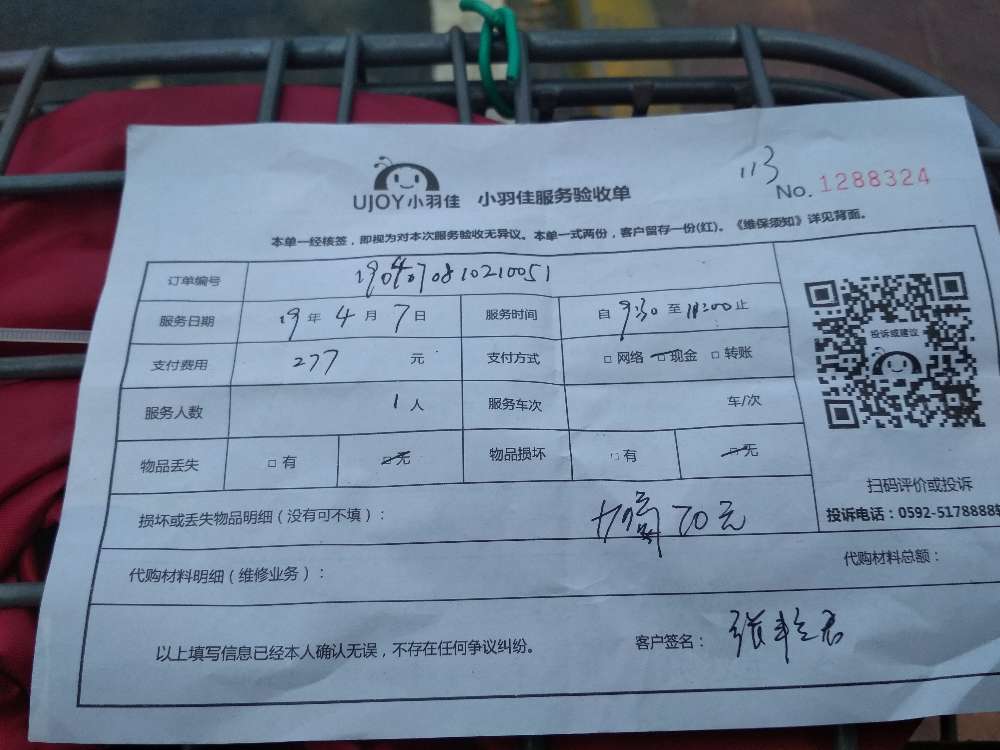 113
No. 1288324
UJOY小羽佳 小羽佳服务验收单
本单一经核签，即视为对本次服务验收无异议。本单一式两份，客户留存一份(红)。《维保须知》详见背面。
订单编号 1904070810210051
服务日期 19年4月7日 服务时间 自9:30至11:00止
支付费用 277元 支付方式 □网络 □现金 □转账
服务人数 1人 服务车次 车/次
物品丢失 □有 □无 物品损坏 □有 □无
投诉或建议
扫码评价或投诉
投诉电话：0592-5178888转
损坏或丢失物品明细（没有可不填）： 70元
代购材料明细（维修业务）： 代购材料总额：
以上填写信息已经本人确认无误，不存在任何争议纠纷。 客户签名：